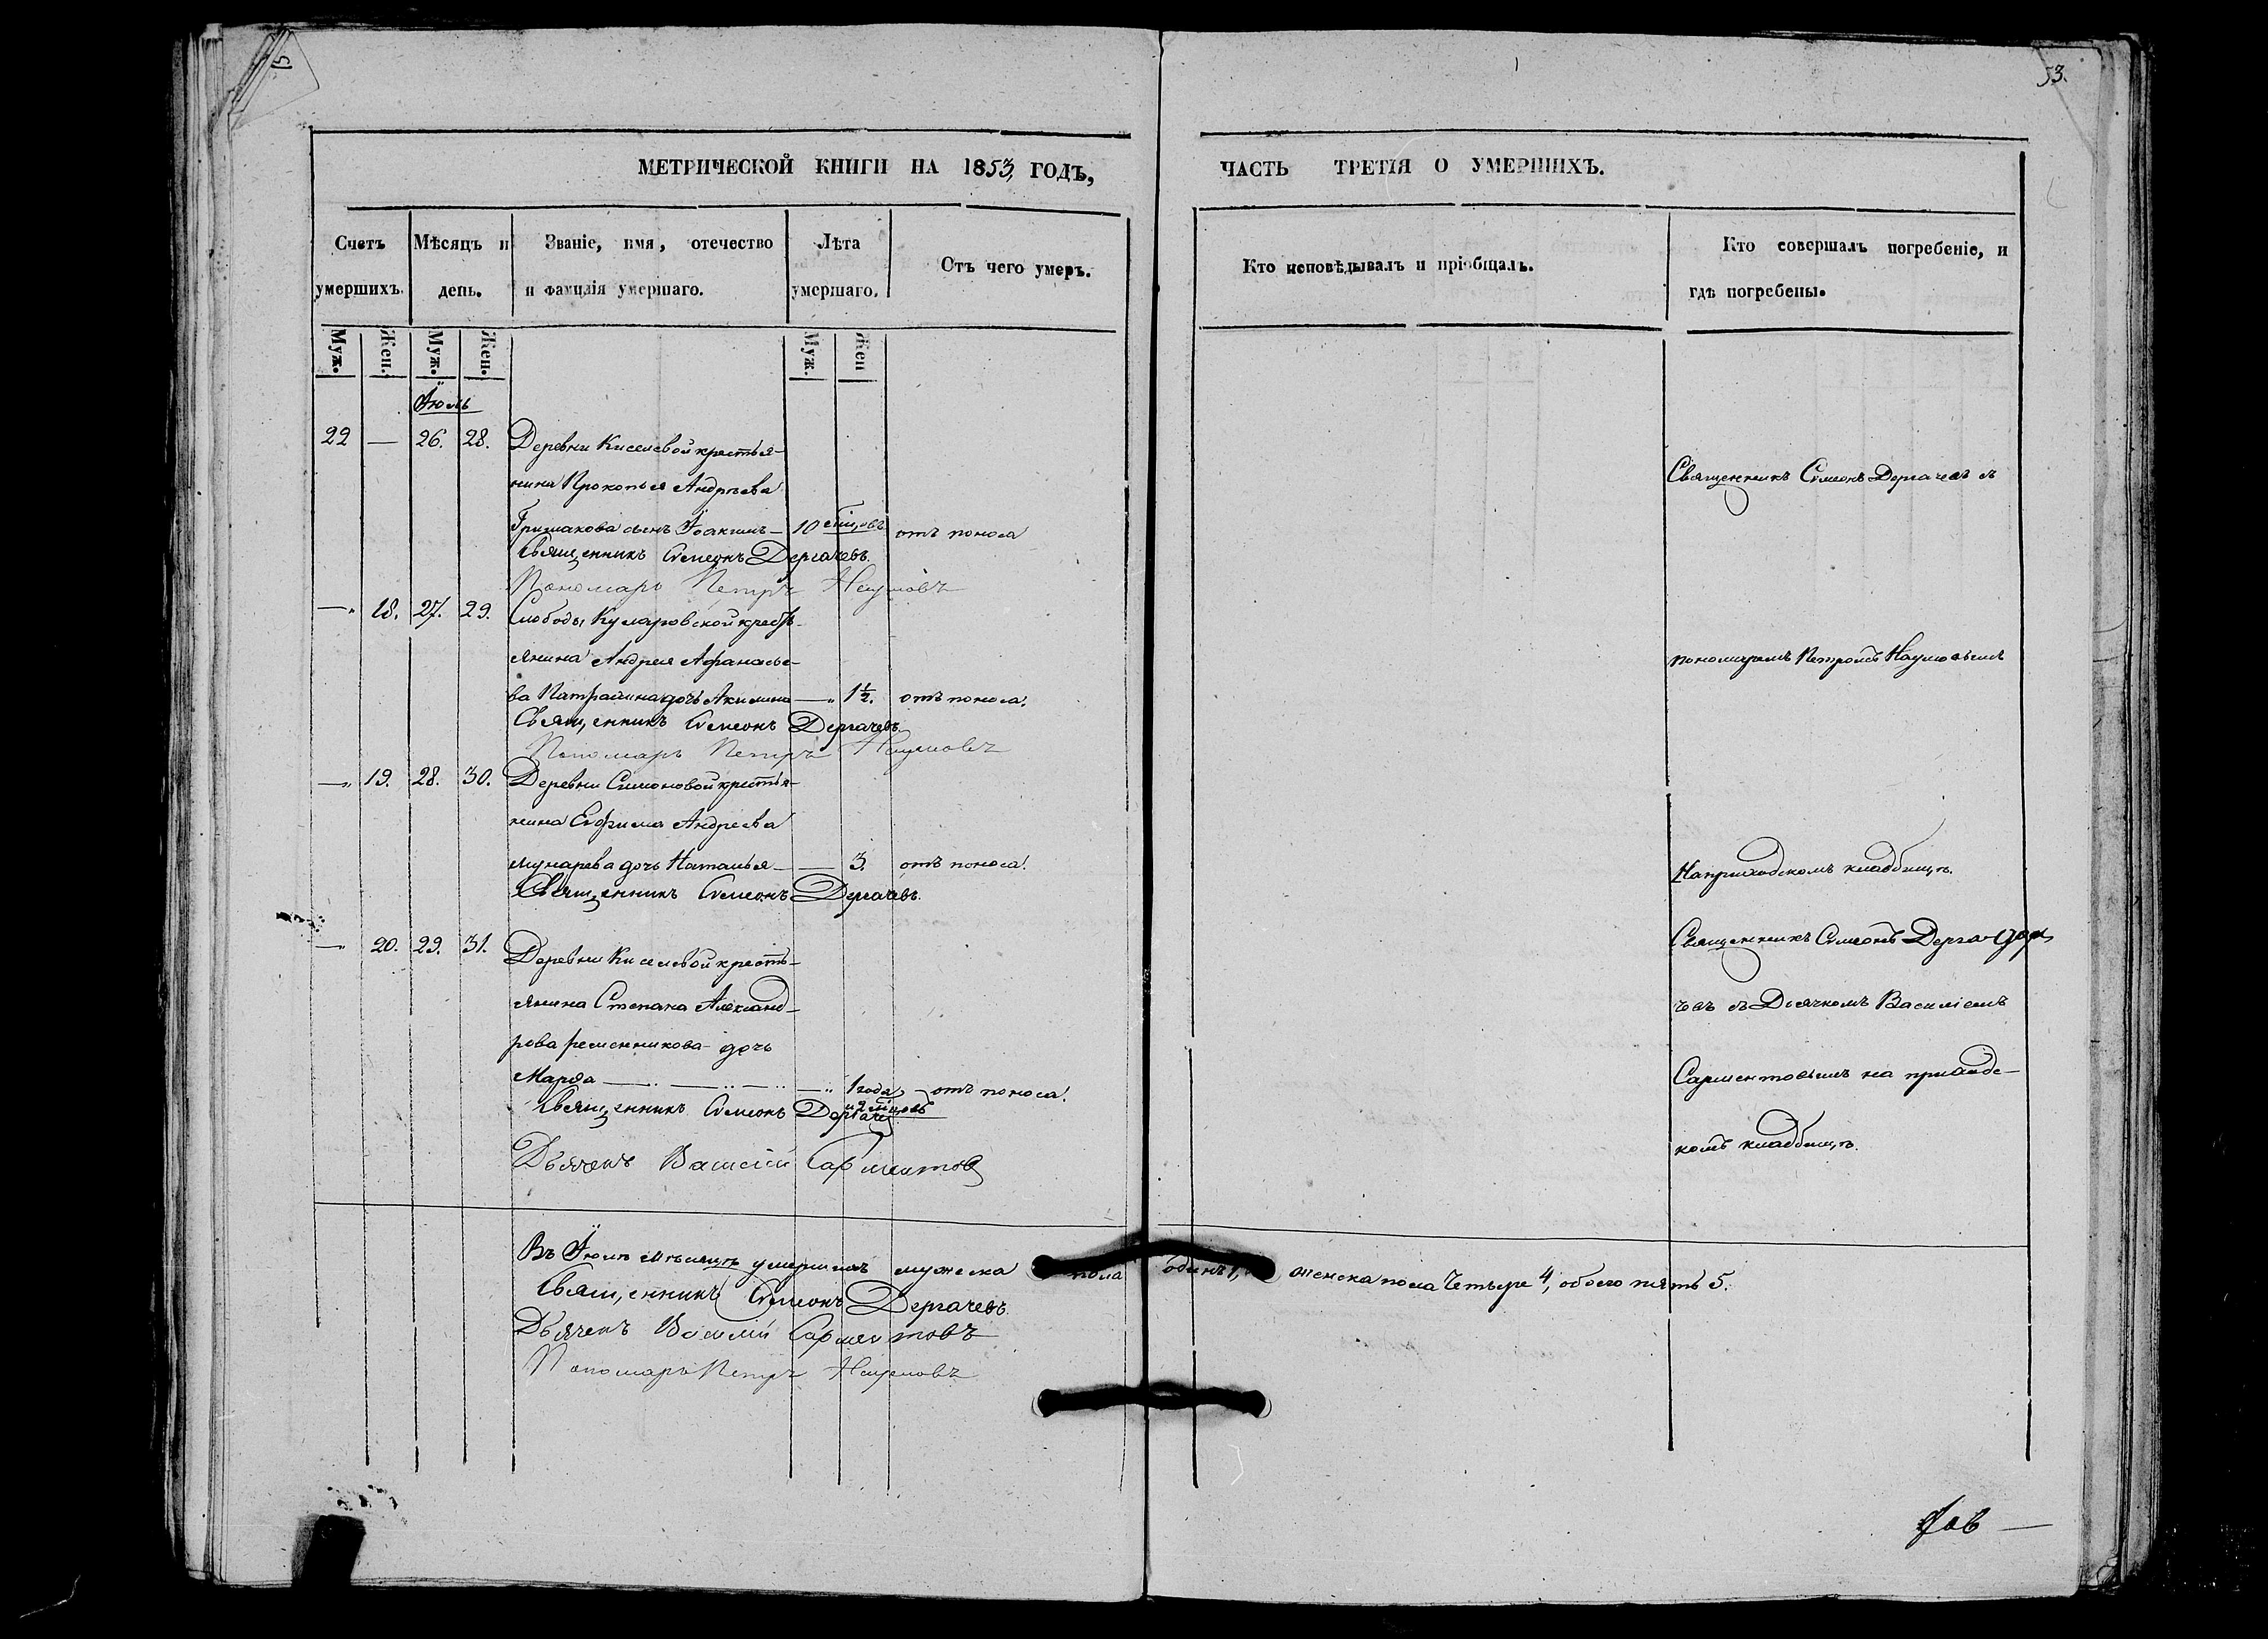 53.
МЕТРИЧЕСКОЙ КНИГИ НА 1853, ГОДЪ,
ЧАСТЬ ТРЕТІЯ О УМЕРШИХЪ.
Счетъ умершихъ.
Мѣсяцъ и день.
Званіе, имя, отечество и фамилія умершаго.
Лѣта умершаго.
Отъ чего умеръ.
Кто исповѣдывалъ и пріобщалъ.
Кто совершалъ погребеніе, и
гдѣ погребены.
Муж. Жен. Муж. Жен. Муж. Жен
Іюль
22 — 26. 28. Деревни Киселевой крестья-
нина Прокопья Андреева
Гришакова сынъ Іоакимъ — 10 отъ поноса
Священникъ Симеонъ Дергачевъ.
Пономарь Петръ Наумовъ
— 18. 27. 29. Слободы кресть-
янина Андрея Афанасье-
ва дочь Акилина — 1½. отъ поноса.
Священникъ Симеонъ Дергачевъ
Пономарь Петръ Наумовъ
— 19. 28. 30. Деревни Симоновой крестья-
нина Ефима Андреева
дочь Наталья — — 3. отъ поноса.
Священникъ Симеонъ Дергачевъ.
— 20. 29. 31. Деревни Киселевой кресть-
янина Степана Александ-
рова ременникова дочь
Марѳа — — — — 1 года — отъ поноса.
Священникъ Симеонъ Дергаче
Дьячекъ Василій Сарментов
Священникъ Симеонъ Дергачевъ съ
пономаремъ Петромъ Наумовымъ
На приходскомъ кладбищѣ.
Священникъ Симеонъ Дерга-
чевъ съ Дьячкомъ Василіемъ
Сарментовымъ на приходс-
комъ кладбищѣ.
Въ Іюлѣ мѣсяцѣ умершихъ мужеска пола одинъ 1, женска пола четыре 4, обоего пять 5.
Священникъ Симеонъ Дергачевъ.
Дьячекъ Василій Сарментовъ
Пономарь Петръ Наумовъ